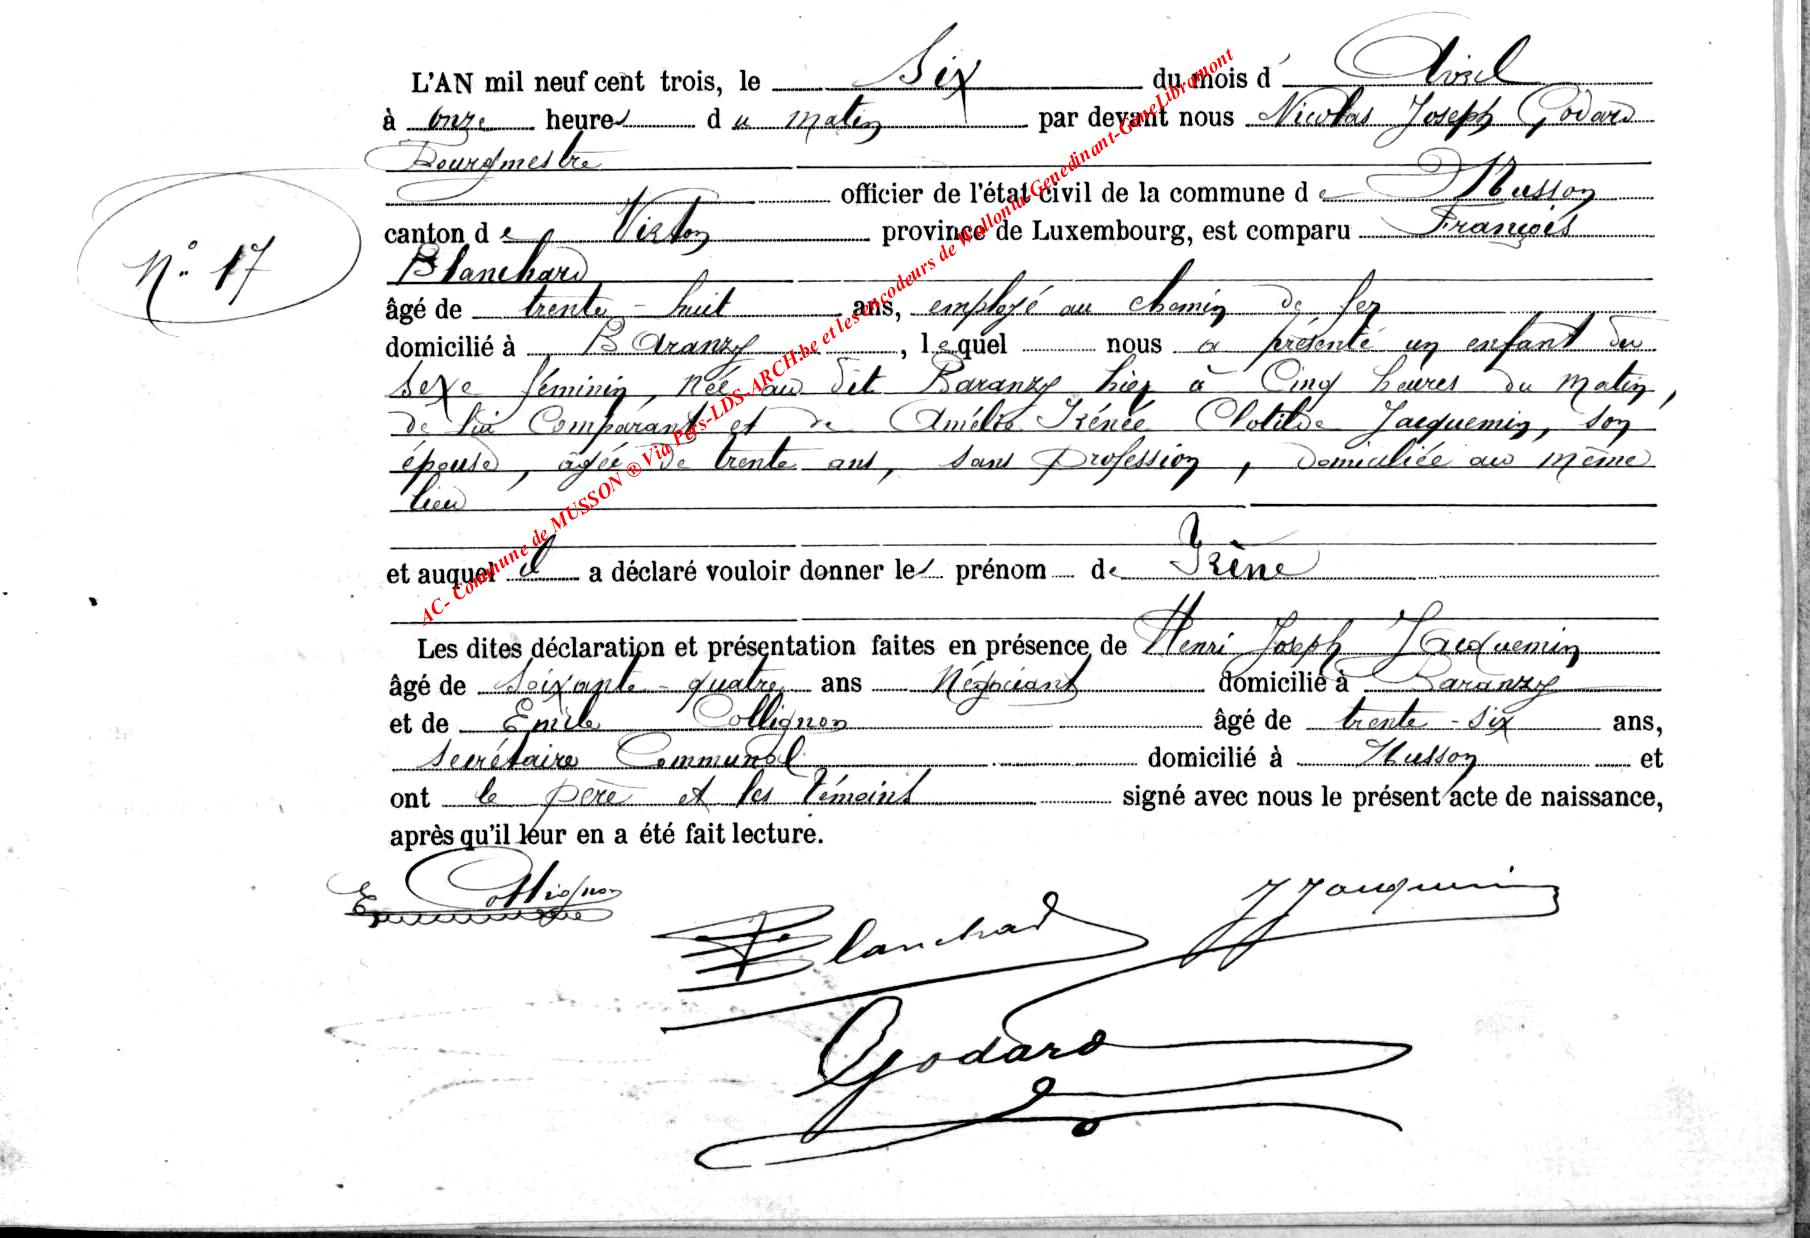 L'AN mil neuf cent trois, le Six du mois d' Avril
à onze heures du matin par devant nous Nicolas Joseph Godard
Bourgmestre
officier de l'état civil de la commune de Musson
canton de Virton province de Luxembourg, est comparu François
Blanchard
N° 17
âgé de trente-huit ans, employé au chemin de fer
domicilié à Baranzy, lequel nous a présenté un enfant du
sexe féminin, née au dit Baranzy hier à Cinq heures du matin,
de lui Comparant et de Amélie Irénée Clotilde Jacquemin, son
épouse, âgée de trente ans, sans profession, domiciliée au même
lieu
et auquel il a déclaré vouloir donner les prénom de Irène
Les dites déclaration et présentation faites en présence de Henri Joseph Jacquemin
âgé de soixante-quatre ans Négociant domicilié à Baranzy
et de Emile Collignon âgé de trente-six ans,
secrétaire Communal domicilié à Musson et
ont le père et les témoins signé avec nous le présent acte de naissance,
après qu'il leur en a été fait lecture.
E Collignon
Blanchard
J Jacquemin
Godard
AC- Commune de MUSSON ® Via Pers-LDS-ARCH.be et les encodeurs de Wallonia-Genedinant-GeneLibramont